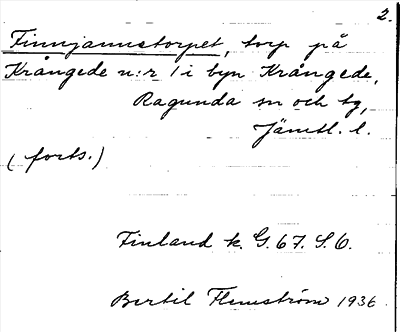 2.
Finnjannstorpet, torp på
Krångede n:r 1 i byn Krångede,
Ragunda sn och tg,
Jämtl. l.
(forts.)
Finland k. G. 67. S. 6.
Bertil Flemström 1936